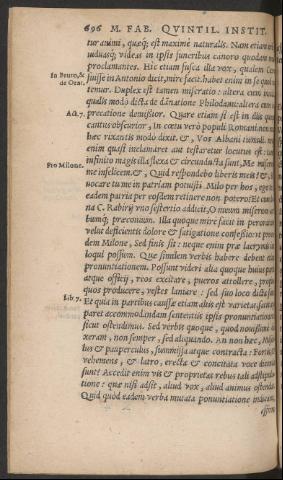 696 M. FAB. QVINTIL. INSTIT.
tur animi, quæq; est maximè naturalis. Nam etiam
uiduasq; videas in ipsis funeribus canoro quodam mo
proclamantes. Hic etiam fusca illa vox, qualem Cice
In Bruto, &
de Orat.
fuisse in Antonio dicit, mire facit. habet enim in se quod
temur. Duplex est tamen miseratio: altera cum
qualis modo dicta de dānatione Philodami: altera cum
Act. 7.
precatione demissior. Quare etiam si est in illis quasi
cantus obscurior, In cœtu verò populi Romani
hæc rixantis modo dixit. &, Vos Albani tumuli
enim quasi inclamaret aut testaretur locutus est:
infinito magis illa flexa & circundūcta sunt, Me miserū
me infelicem. &, Quid respondebo liberis meis? &,
Pro Milone.
uocare tu me in patriam potuisti. Milo per hos, ego te
eadem patria per eosdem retinere non potero? Et cum
na C. Rabirij vno sestertio addicit, O meum miserum
bumq; præconium. Illa quoque mirè facit in peroratione
velut deficientis dolore & fatigatione confessio: vt pro eo
dem Milone, Sed finis sit: neque enim præ lacrymis iam
loqui possum. Quæ similem verbis habere debent
pronuntiationem. Possunt videri alia quoque huius
atque officij, reos excitare, pueros attollere,
quos producere, vestes laniare: sed suo loco dicta
Lib. 7.
Et quia in partibus caussæ etiam aliis est varietas,
paret accommodandam sententiis ipsis pronuntiationem
sicut ostendimus. Sed verbis quoque, quod nouissimè
xeram, non semper, sed aliquando. An non hæc,
lus & pauperculus, summissa atque contracta: Fortis,
vehemens, & latro, erecta & concitata voce
sunt? Accedit enim vis & proprietas rebus tali adstipula
tione: quæ nisi adsit, aliud vox, aliud animus ostendat.
Quid quòd eadem verba mutata pronuntiatione